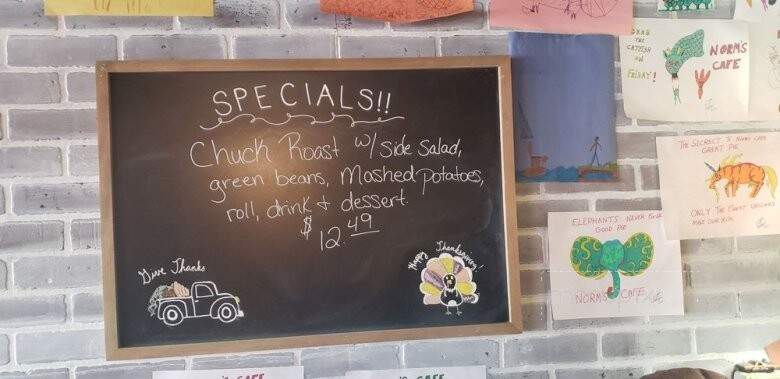 SPECIALS!!
Chuck Roast w/ side salad,
green beans, Mashed potatoes,
roll, drink & dessert.
$12.49
Give Thanks
Happy Thanksgiving!
GRAB
THE
CATFISH
ON
FRIDAY!
NORM'S
CAFE
THE SECRECT
GREAT PIE
ONLY THE FINEST UNICORNS
MAKE OUR
ELEPHANTS NEVER
GOOD PIE
NORMS CAFE
CAFE
CAFE